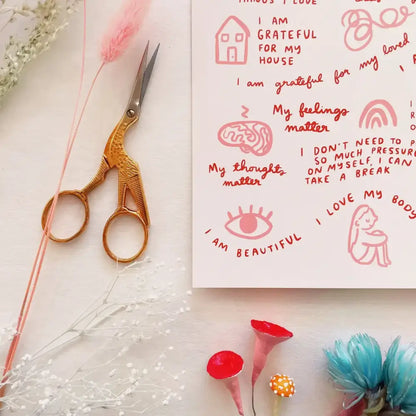 THINGS I LOVE
I AM
GRATEFUL
FOR MY
HOUSE
I am grateful for my loved
My feelings
matter
My thoughts
matter
I DON'T NEED TO P
SO MUCH PRESSUR
ON MYSELF, I CAN
TAKE A BREAK
I AM BEAUTIFUL
I LOVE MY BODY